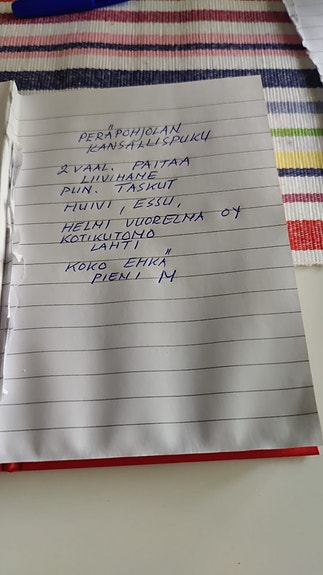 PERÄPOHJOLAN
KANSALLISPUKU
2 VAAL. PAITAA
LIIVIHAME
PUN. TASKUT
HUIVI, ESSU,
HELMI VUORELMA OY
KOTIKUTOMO
LAHTI
KOKO EHKÄ
PIENI M